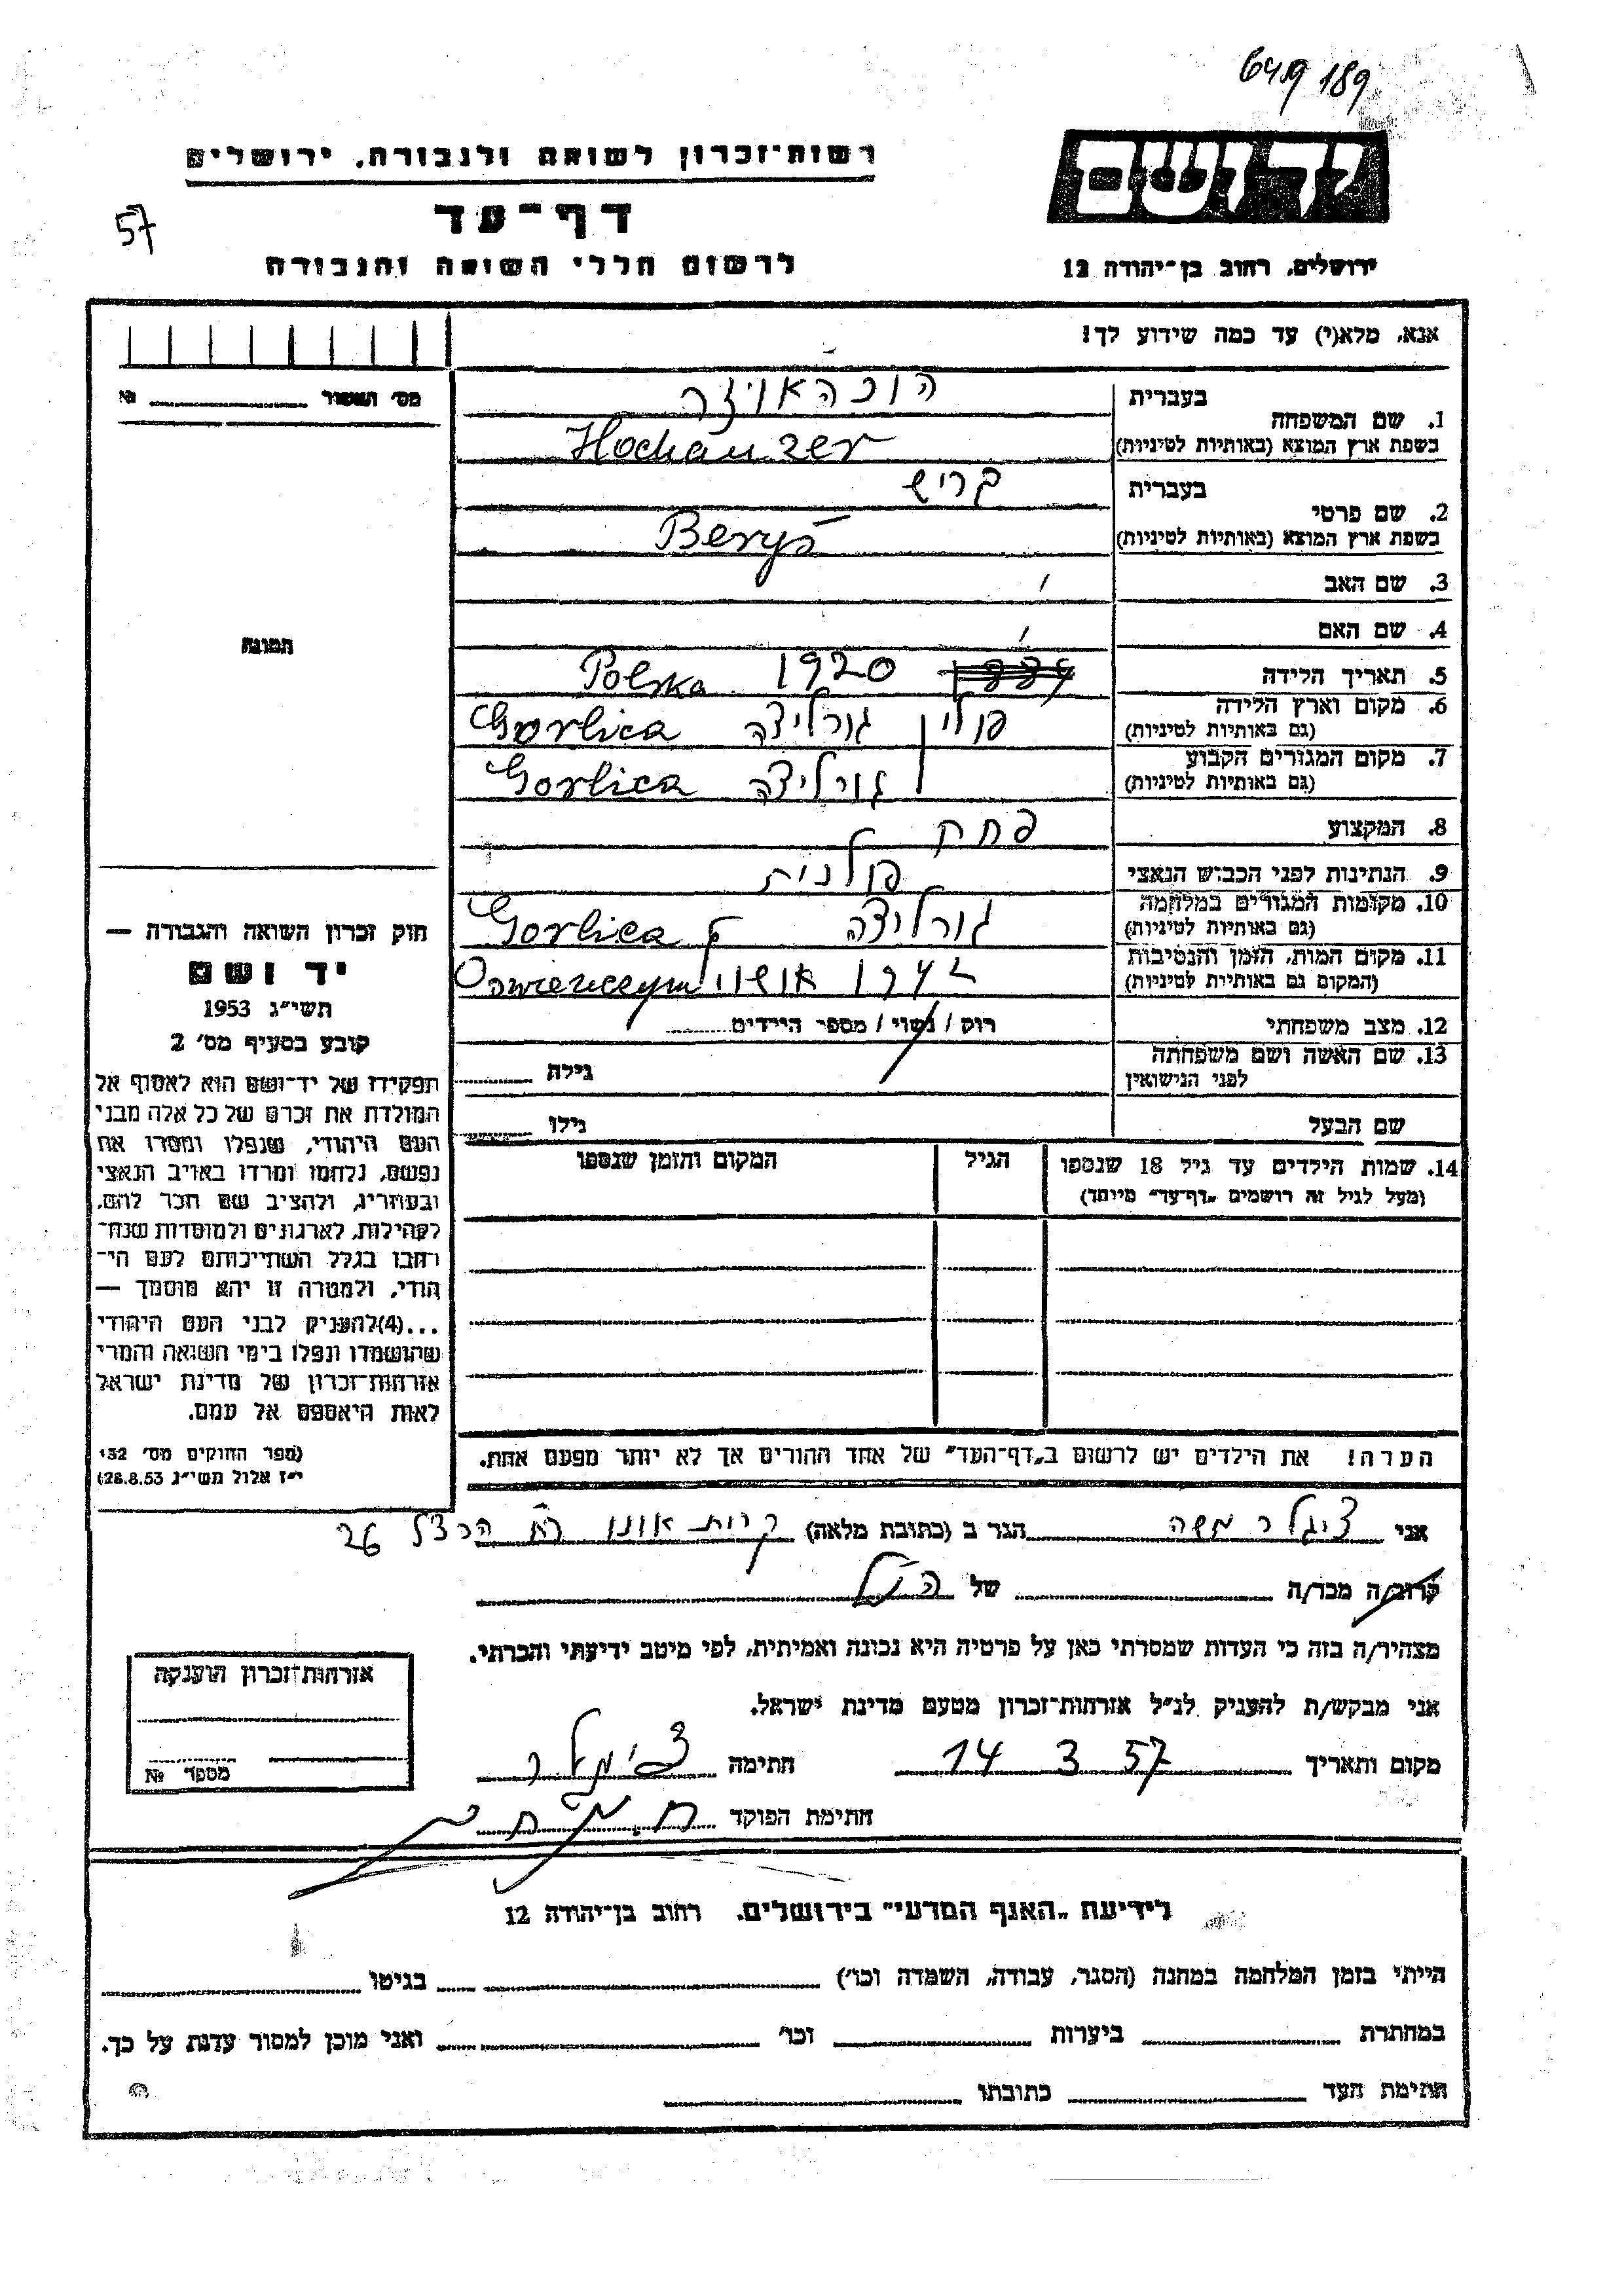 6419 189
יד ושם
רשות־זכרון לשואה ולגבורה, ירושלים
דף־עד
57
לרשום חללי השואה והגבורה
ירושלים, רחוב בן־יהודה 12
אנא, מלא(י) עד כמה שידוע לך!
מס׳ השאור № 
1. שם המשפחה
בעברית הוכהאויזר
בשפת ארץ המוצא (באותיות לטיניות) Hochauzer
2. שם פרטי
בעברית בריש
בשפת ארץ המוצא (באותיות לטיניות) Beryś
3. שם האב
4. שם האם
תמונה
5. תאריך הלידה 1884 1920 Polska
6. מקום וארץ הלידה (גם באותיות לטיניות) פולין גורליצה Gorlica
7. מקום המגורים הקבוע (גם באותיות לטיניות) גורליצה Gorlica
8. המקצוע פחח
9. הנתינות לפני הכבוש הנאצי פולנית
10. מקומות המגורים במלחמה (גם באותיות לטיניות) גורליצה Gorlica
11. מקום המות, הזמן והנסיבות (המקום גם באותיות לטיניות) 1942
12. מצב משפחתי רווק / נשוי / מספר הילדים
13. שם האשה ושם משפחתה לפני הנישואין גילה
שם הבעל גילו
14. שמות הילדים עד גיל 18 שנספו הגיל המקום והזמן שנספו
(מעל לגיל זה רושמים „דף־עד״ מיוחד)
הערה! את הילדים יש לרשום ב„דף־העד״ של אחד ההורים אך לא יותר מפעם אחת.
חוק זכרון השואה והגבורה —
יד ושם
תשי״ג 1953
קובע בסעיף מס׳ 2
תפקידו של יד־ושם הוא לאסוף אל
המולדת את זכרם של כל אלה מבני
העם היהודי, שנפלו ומסרו את
נפשם, נלחמו ומרדו באויב הנאצי
ובעוזריו, ולהציב שם וזכר להם,
לקהילות, לארגונים ולמוסדות שנח־
רבו בגלל השתייכותם לעם הי־
הודי, ולמטרה זו יהא מוסמך —
...(4)להעניק לבני העם היהודי
שהושמדו ונפלו בימי השואה והמרי
אזרחות־זכרון של מדינת ישראל
לאות היאספם אל עמם.
(ספר החוקים מס׳ 132
י״ז אלול תשי״ג 28.8.53)
אני ציגלר משה הגר ב (כתובת מלאה) קרית אונו רח הרצל 26
קרוב/ה מכר/ה של הנ״ל
מצהיר/ה בזה כי העדות שמסרתי כאן על פרטיה היא נכונה ואמיתית, לפי מיטב ידיעתי והכרתי.
אני מבקש/ת להעניק לנ״ל אזרחות־זכרון מטעם מדינת ישראל.
מקום ותאריך 14 3 57 חתימה
חתימת הפוקד
אזרחות־זכרון הוענקה
מספר №
לידיעת „האגף המדעי״ בירושלים, רחוב בן־יהודה 12
הייתי בזמן המלחמה במחנה (הסגר, עבודה, השמדה וכו׳) בגיטו
במחתרת ביערות וכו׳ ואני מוכן למסור עדות על כך.
חתימת העד כתובתו